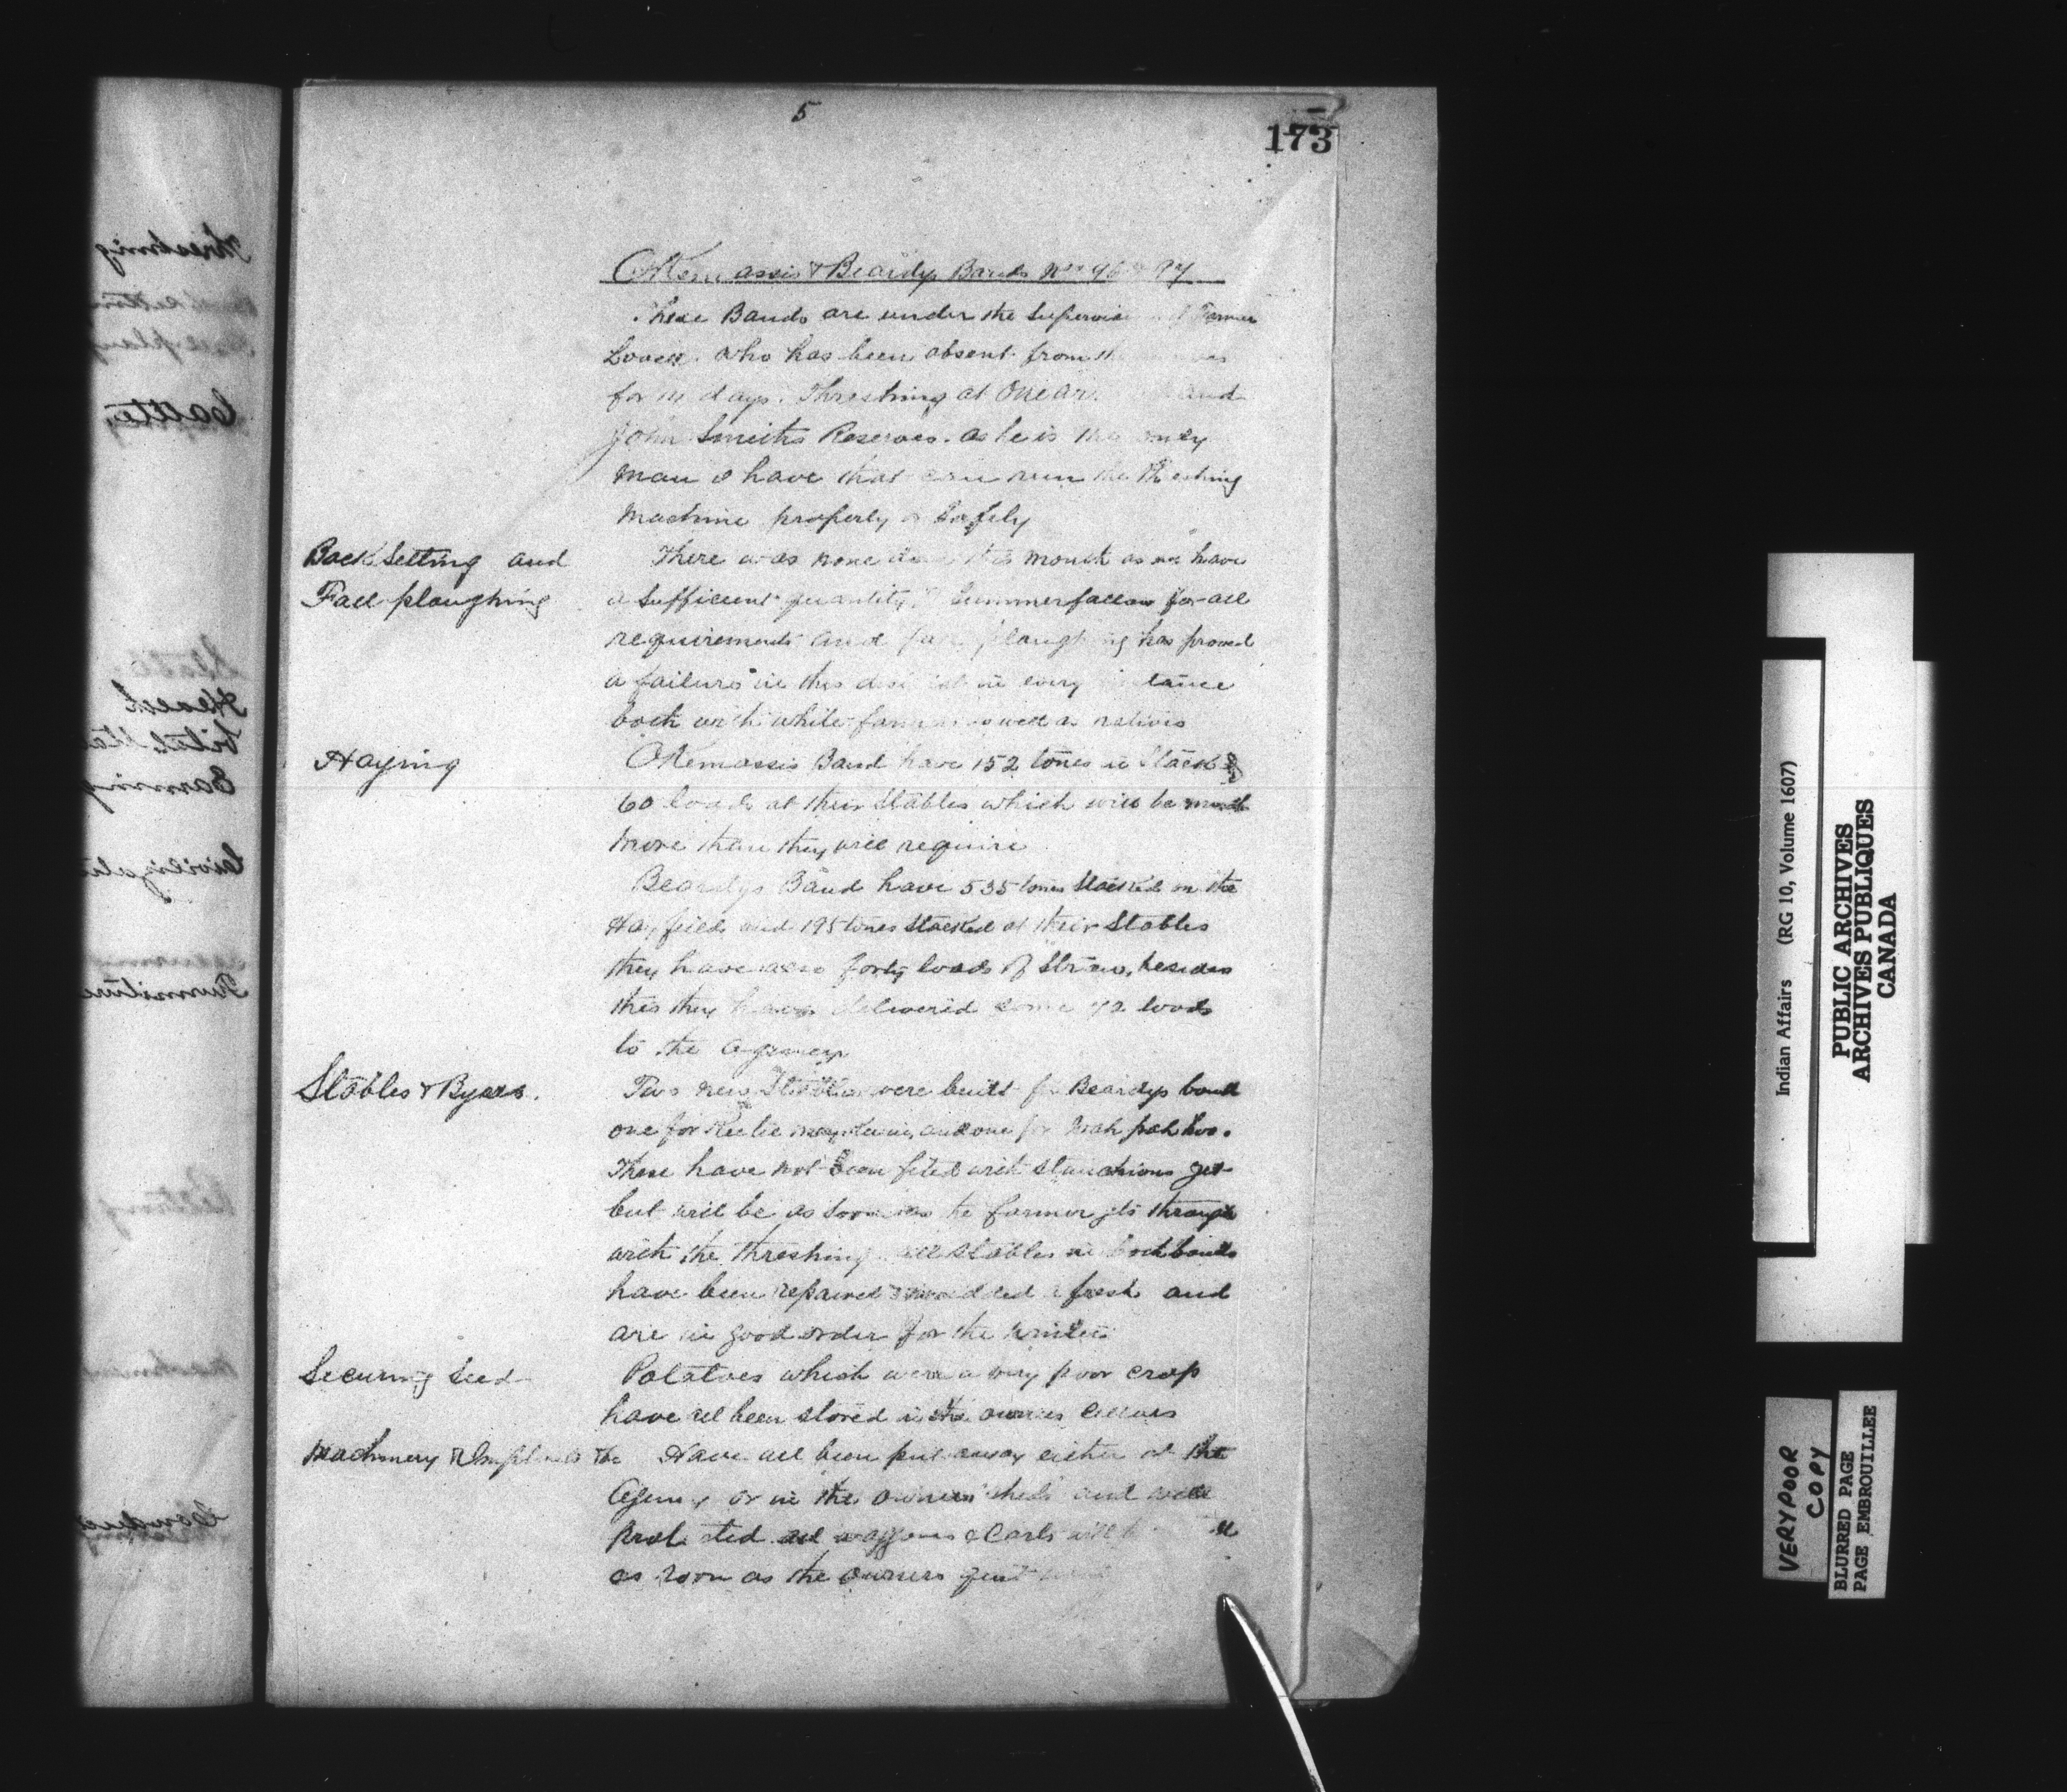 5
173
Okemassis & Beardys Bands Nos 96 & 97
These Bands are under the Supervision of Farmer
Lovell. Who has been absent from the
for 14 days. Threshing at One Arrow and
John Smiths Reserves. as he is the only
man I have that can run the Threshing
Machine properly or Safely
Back Setting and
Fall ploughing
There was none done this month as we have
a Sufficient quantity Summerfallow for all
requirements and fall ploughing has proved
a failure in this district in every instance
both with white farmers as well as natives
Haying
Okemassis Band have 152 tones in Stack &
60 loads at their Stables which will be much
more than they will require
Beardys Band have 535 tones Stacked in the
Hay fields and 195 tones Stacked at their Stables
they have also forty loads of Straw, besides
this they have delivered some 42 loads
to the Agency
Stables & Byers.
Two new Stables were built for Beardys band
one for and one for
These have not been fited with Stanchions yet
but will be as soon as the farmer gets through
with the threshing all Stables in both bands
have been repaired & mudded a fresh and
are in good order for the winter
Securing Seed
Potatoes which were a very poor crop
have all been stored in the owners Cellars
Machinery & Implements &c Have all been put away either at the
Agency or in the owners sheds and well
Protected all waggons & Carts will be
as soon as the owners quit using
Indian Affairs (RG 10, Volume 1607)
PUBLIC ARCHIVES
ARCHIVES PUBLIQUES
CANADA
VERY POOR
COPY
BLURRED PAGE
PAGE EMBROUILLEE